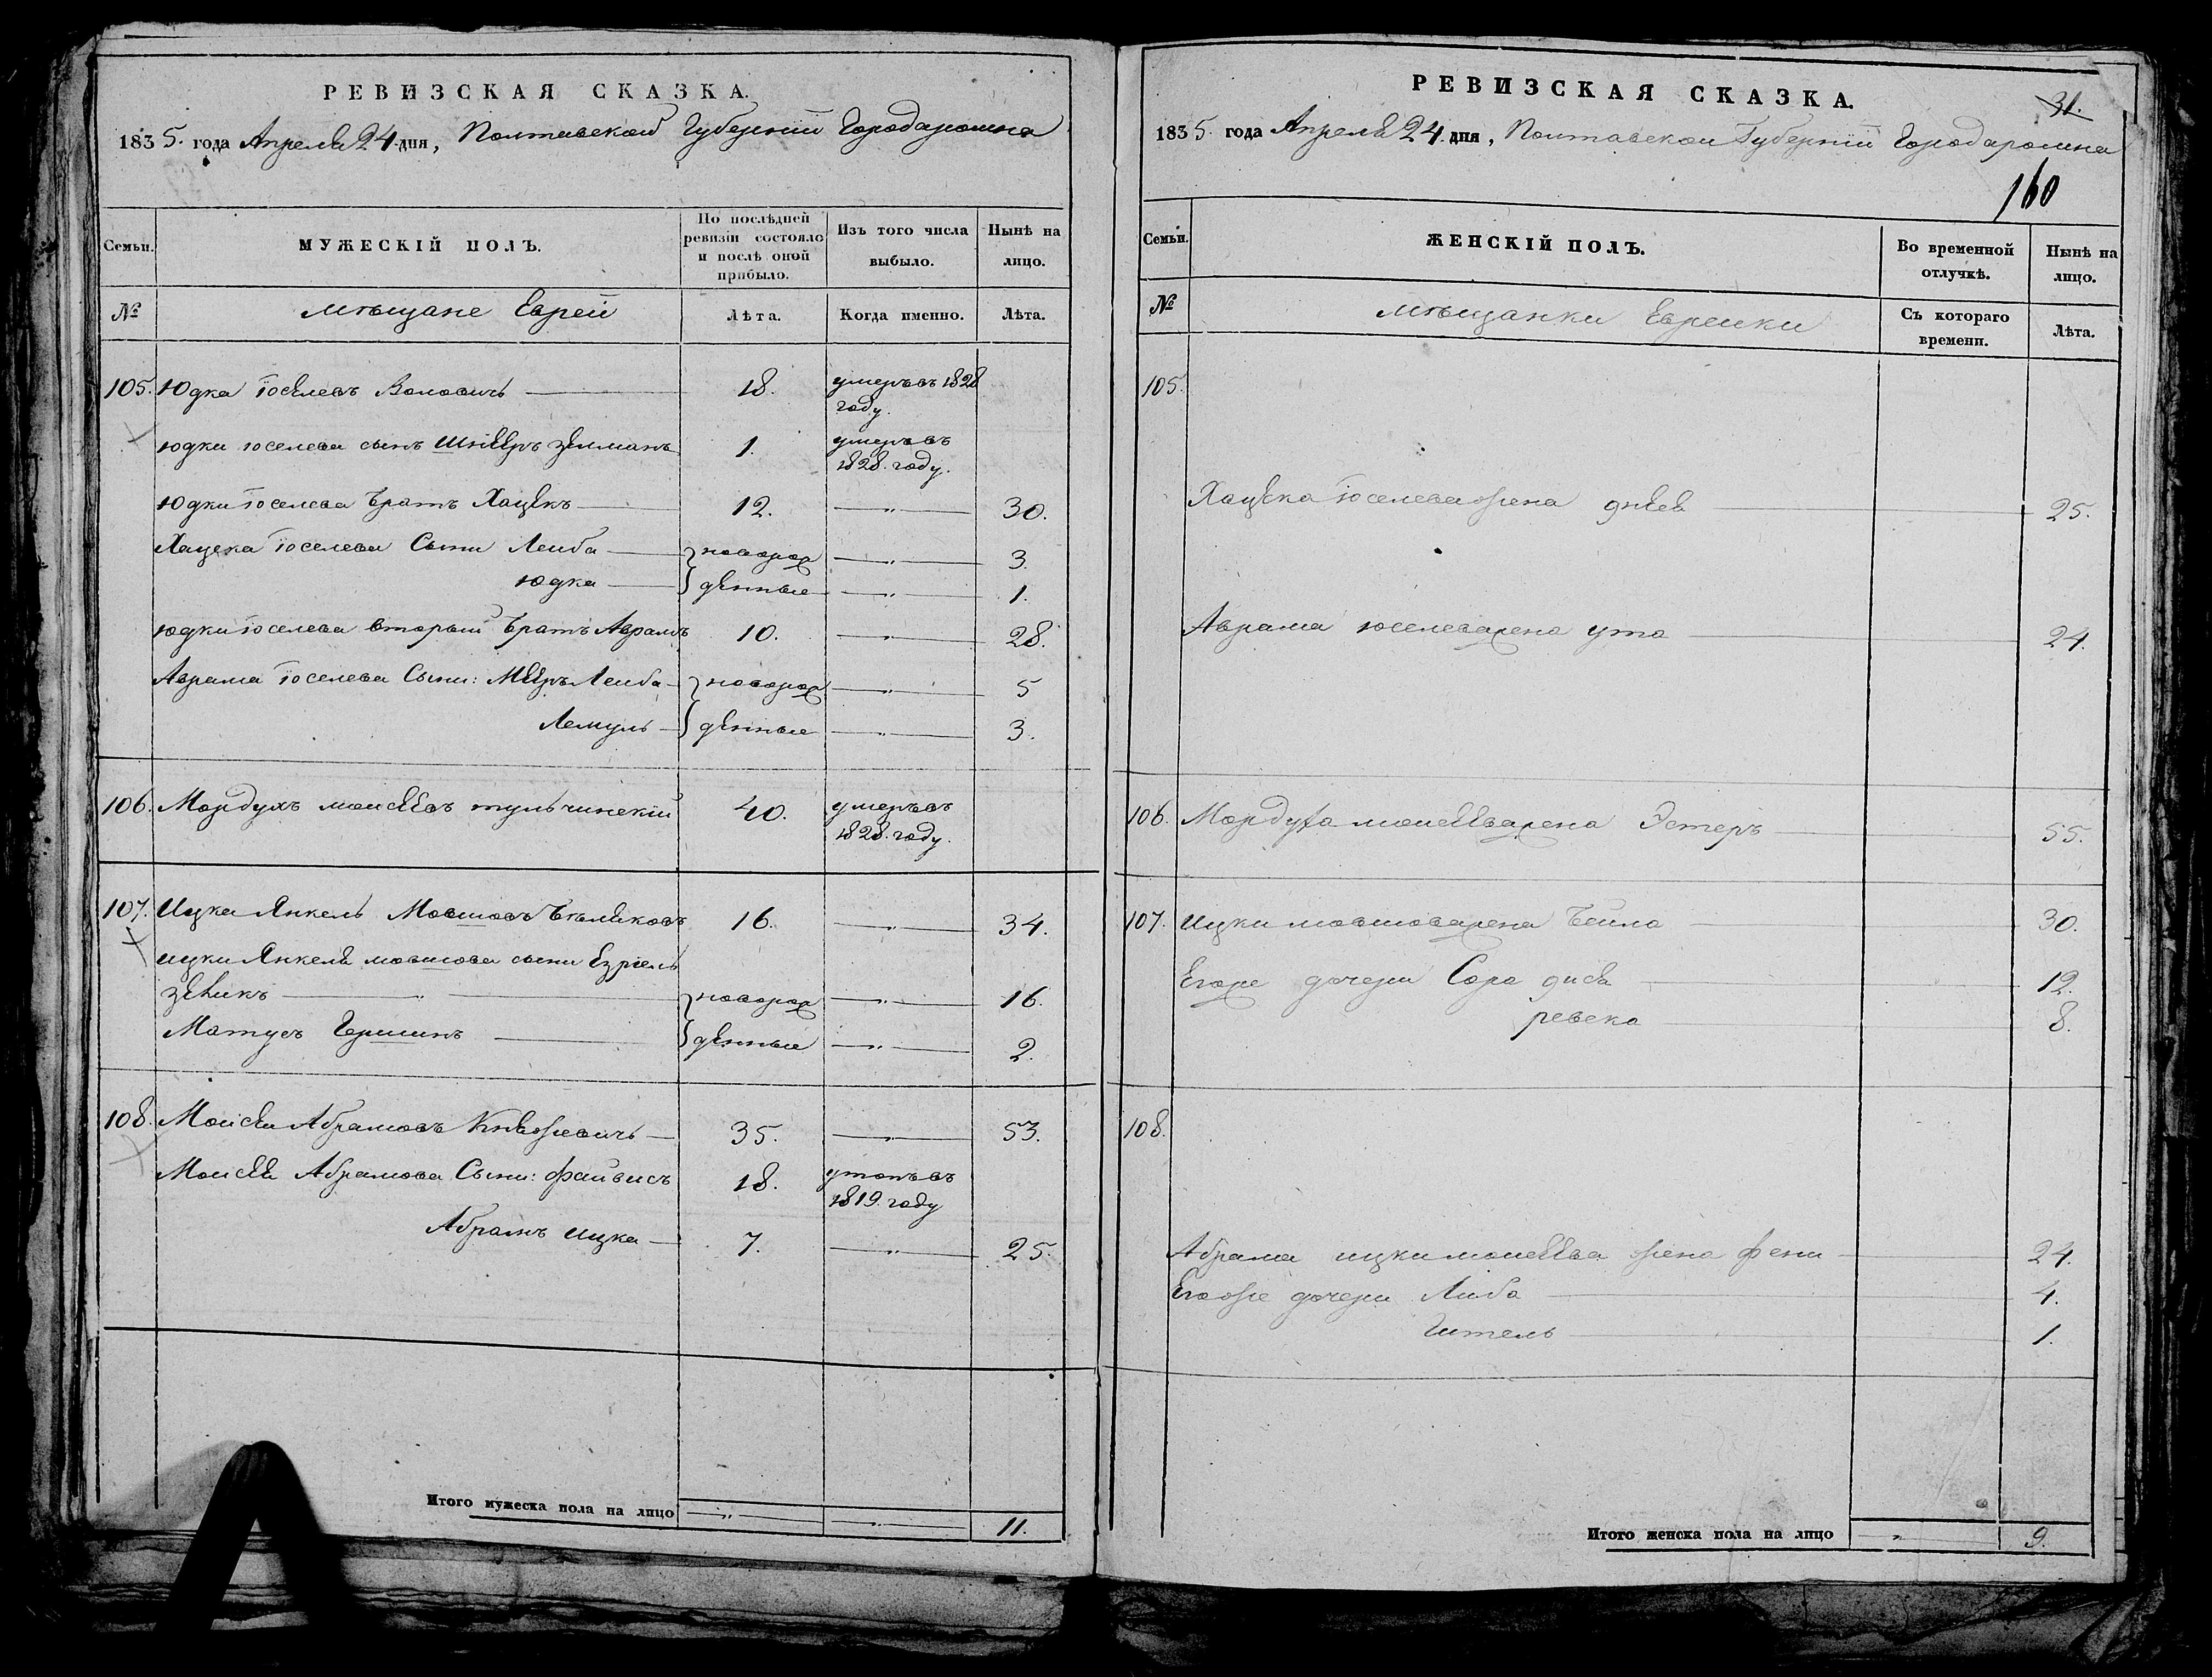 РЕВИЗСКАЯ СКАЗКА.
1835. года Апреля 24. дня, Полтавской Губернїи Города
Семьи.
МУЖЕСКІЙ ПОЛЪ.
По послѣдней ревизіи состояло и послѣ оной прибыло.
Изъ того числа выбыло.
Нынѣ на лицо.
№
мѣщане Евреи
Лѣта.
Когда именно.
Лѣта.
105. Юдка Іоселевъ Воловичъ 18. умеръ въ 1828 году.
Юдки Іоселева сынъ Шнееръ Зелманъ 1. умеръ въ 1828. году.
Юдки Іоселева братъ Хацкель 12. —„— 30.
Хацкеля Іоселева Сыны Лейба } новорож —„— 3
Юдка } денные —„— 1.
Юдки Іоселева вторый братъ Аврамъ 10. —„— 28.
Аврама Іоселева Сыны: Мееръ Лейба } новорож —„— 5
} денные —„— 3.
106. Мордухъ Моисеевъ Тульчинскїй 40. умеръ въ 1828. году.
107. Ицка Янкель Мовшовъ 16. —„— 34.
Ицки Янкеля Мовшова сыны Езрїель
Зеликъ —„— } новорож —„— 16.
Матусъ Гершинъ } денные —„— 2.
108. Моисей Абрамовъ 35. —„— 53.
Моисея Абрамова Сыны: Файвисъ 18. утопъ въ 1819. году
Абрамъ Ицка 7. —„— 25.
Итого мужеска пола на лицо —„— —„— 11.
РЕВИЗСКАЯ СКАЗКА.
31.
1835. года Апреля 24. дня, Полтавской Губернїи Города
160
Семьи.
ЖЕНСКІЙ ПОЛЪ.
Во временной отлучкѣ.
Нынѣ на лицо.
№
мѣщанки Еврейки
Съ котораго времени.
Лѣта.
105.
Іоселева жена 25.
Аврама Іоселева жена 24.
106. Мордуха Моисеева жена Эстеръ 55.
107. Ицки Мовшова жена Бейла 30.
Его же дочери Сора 12.
Ревека 8.
108.
Абрама Ицки Моисеева жена Фени 24.
Его же дочери Либа 4.
Гитель 1.
Итого женска пола на лицо —„— 9.